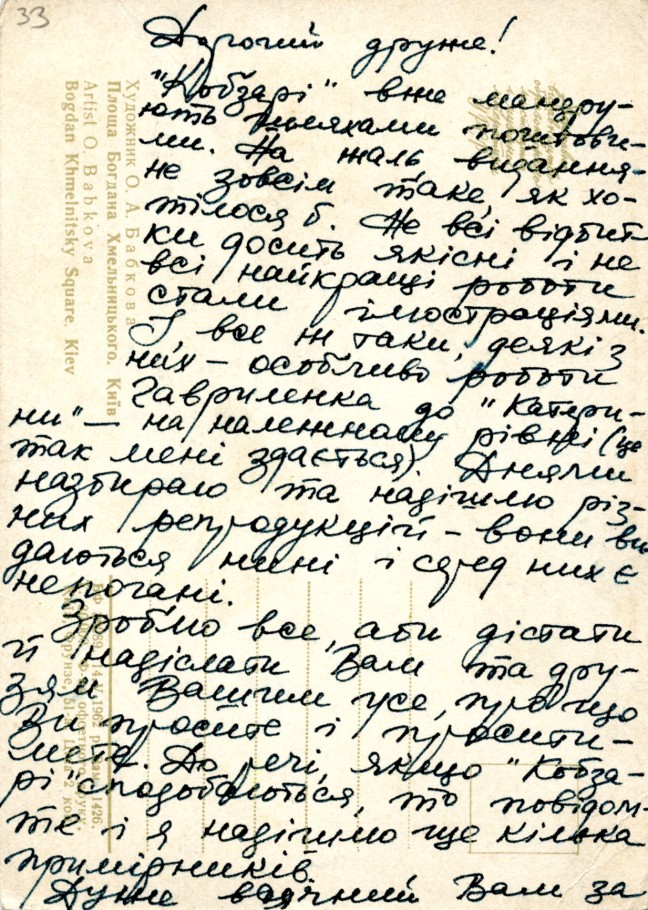 33
Дорогий друже!
"Кобзарі" вже мандру-
ють шляхами поштови-
ми. На жаль, видання-
не зовсім таке, як хо-
тілося б. Не всі відбит-
ки досить якісні і не
всі найкращі роботи
стали ілюстраціями.
І, все ж таки, деякі з
них – особливо роботи
Гавриленка до "Катери-
ни" – на належному рівні (це
так мені здається). Днями
назбираю та надішлю різ-
них репродукцій – вони ви-
даються нині і серед них є
непогані.
Зроблю все, аби дістати
й надіслати Вам та дру-
зям Вашим усе, про що
Ви просите і просити-
мете. До речі, якщо "Кобза-
рі" сподобаються, то повідом-
те і я надішлю ще кілька
примірників.
Дуже вдячний Вам за
Художник О. А. Бабкова
Площа Богдана Хмельницького. Київ
Artist O. Babkova
Bogdan Khmelnitsky Square. Kiev